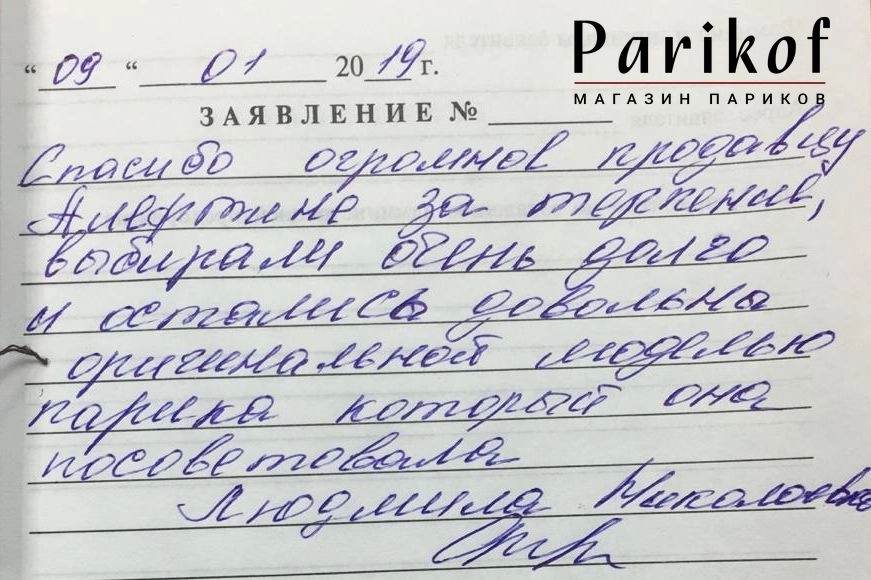 Parikof
МАГАЗИН ПАРИКОВ
“ 09 “ 01 2019 г.
ЗАЯВЛЕНИЕ №
Спасибо огромное продавцу
Алефтине за терпение,
выбирали очень долго
и остались довольны
оригинальной моделью
парика который она
посоветовала
Людмила Николаевна